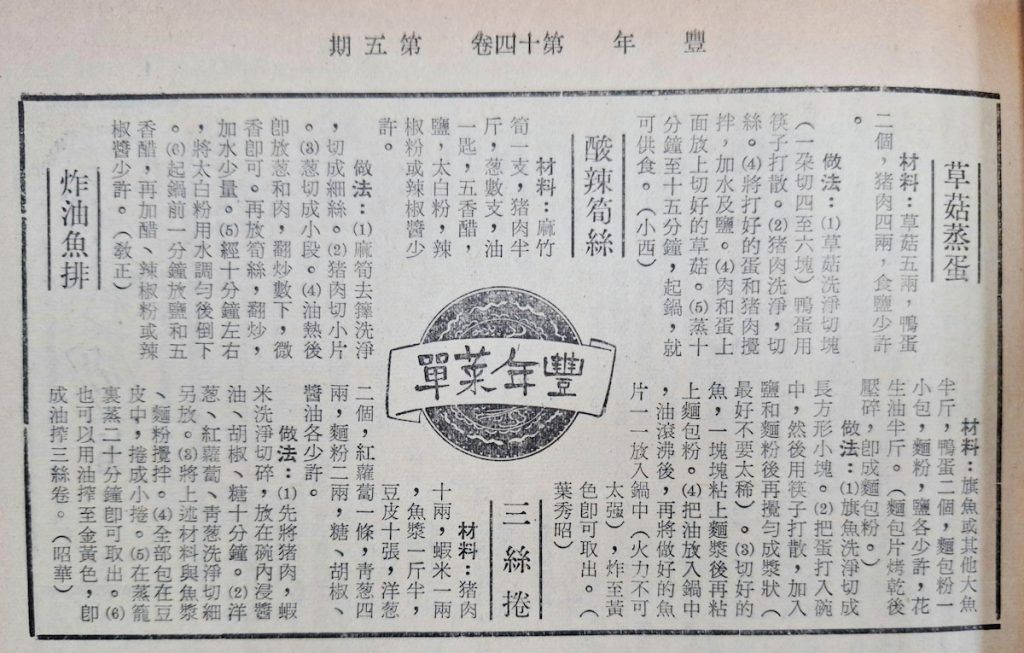 豐年　第十四卷　第五期
草菇蒸蛋
材料：草菇五兩，鴨蛋
二個，猪肉四兩，食鹽少許
。
做法：⑴草菇洗淨切塊
（一朶切四至六塊）鴨蛋用
筷子打散。⑵猪肉洗淨，切
絲。⑷將打好的蛋和猪肉攪
拌，加水及鹽。⑷肉和蛋上
面放上切好的草菇。⑸蒸十
分鐘至十五分鐘，起鍋，就
可供食。（小西）
酸辣筍絲
材料：麻竹
筍一支，猪肉半
斤，葱數支，油
一匙，五香醋，
鹽，太白粉，辣
椒粉或辣椒醬少
許。
做法：⑴麻筍去籜洗淨
，切成細絲。⑵猪肉切小片
。⑶葱切成小段。⑷油熱後
卽放葱和肉，翻炒數下，微
香卽可。再放筍絲，翻炒，
加水少量。⑸經十分鐘左右
，將太白粉用水調勻後倒下
。⑹起鍋前一分鐘放鹽和五
香醋，再加醋、辣椒粉或辣
椒醬少許。（敎正）
炸油魚排
材料：旗魚或其他大魚
半斤，鴨蛋二個，麵包粉一
小包，麵粉，鹽各少許，花
生油半斤。（麵包片烤乾後
壓碎，卽成麵包粉。）
做法：⑴旗魚洗淨切成
長方形小塊。⑵把蛋打入碗
中，然後用筷子打散，加入
鹽和麵粉後再攪勻成漿狀（
最好不要太稀）。⑶切好的
魚，一塊塊粘上麵漿後再粘
上麵包粉。⑷把油放入鍋中
，油滾沸後，再將做好的魚
片一一放入鍋中（火力不可
太强），炸至黃
色卽可取出。（
葉秀昭）
豐年菜單
三絲捲
材料：猪肉
十兩，蝦米一兩
，魚漿一斤半，
豆皮十張，洋葱
二個，紅蘿蔔一條，靑葱四
兩，麵粉二兩，糖、胡椒、
醬油各少許。
做法：⑴先將猪肉，蝦
米洗淨切碎，放在碗內浸醬
油、胡椒、糖十分鐘。⑵洋
葱、紅蘿蔔、靑葱洗淨切細
另放。⑶將上述材料與魚漿
、麵粉攪拌。⑷全部包在豆
皮中，捲成小捲。⑸在蒸籠
裏蒸二十分鐘卽可取出。⑹
也可以用油搾至金黃色，卽
成油搾三絲卷。（昭華）